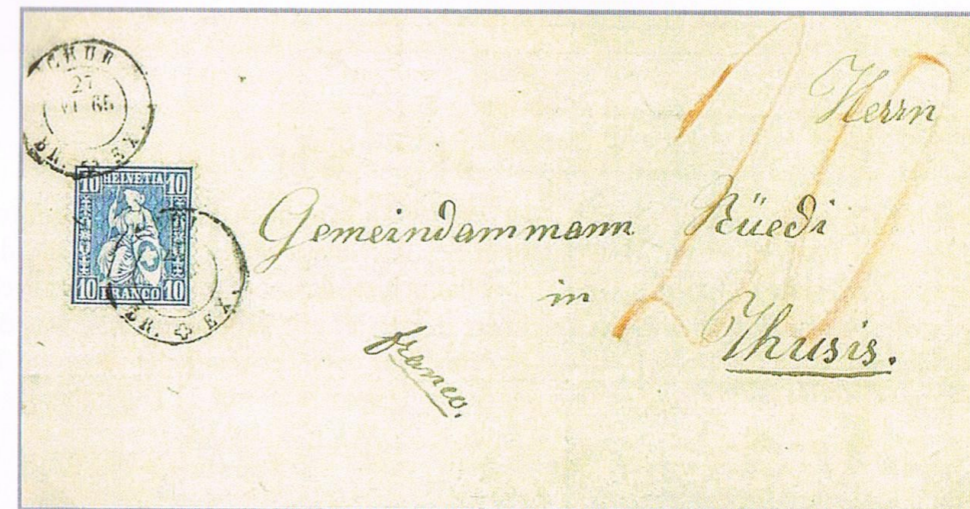 CHUR
27
VI 65
BR. EX.
10 HELVETIA 10
10 FRANCO 10
BR. EX.
20
Herrn
Gemeindammann Rüedi
in
Thusis.
franco.